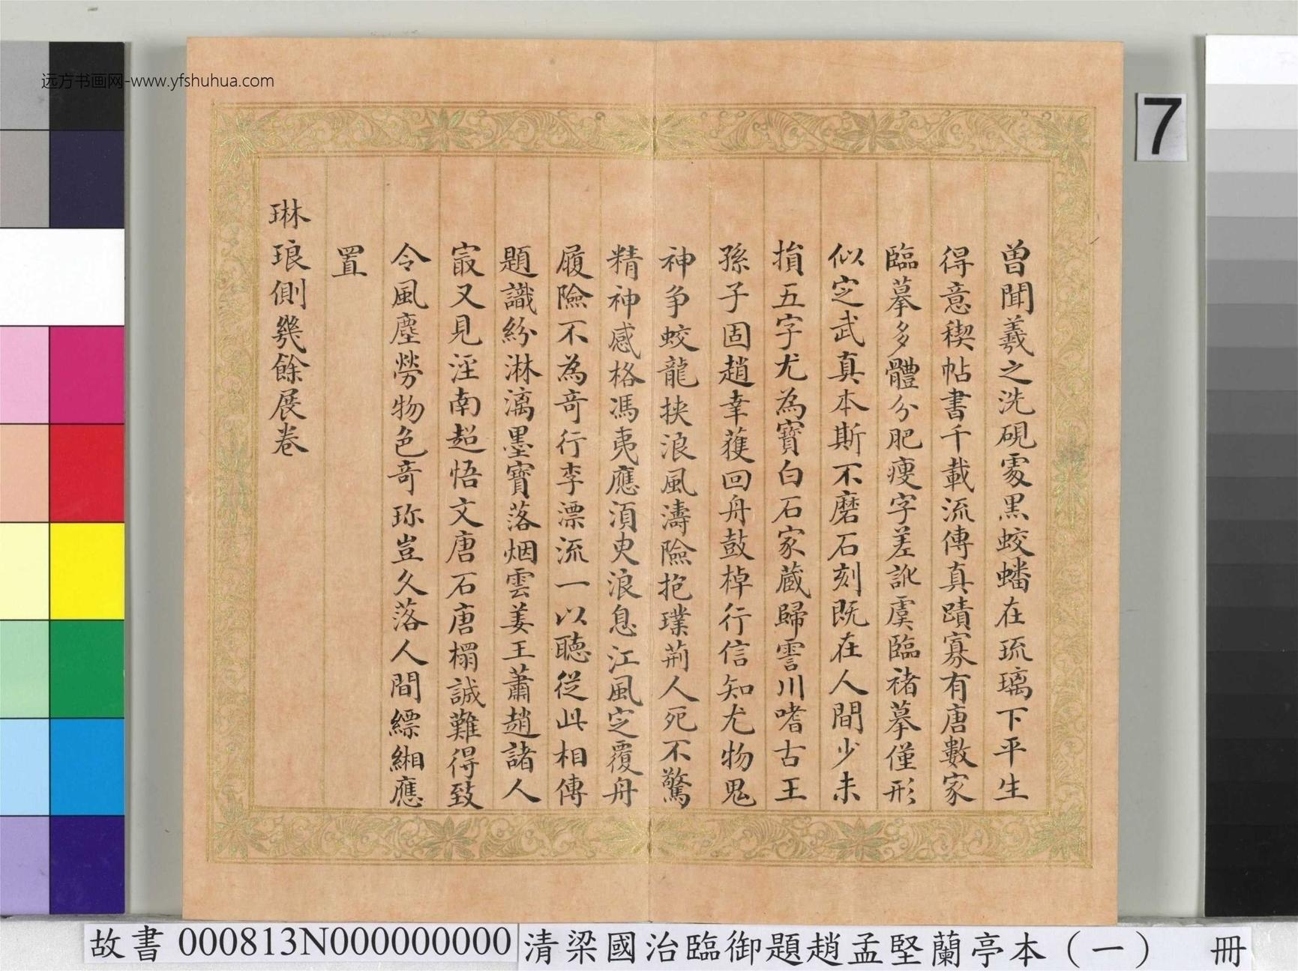 远方书画网-www.yfshuhua.com
7
曽聞羲之洗硯處黒蛟蟠在琉璃下平生
得意稧帖書千載流傳真蹟寡有唐數家
臨摹多體分肥痩字差訛虞臨褚摹僅形
似定武真本斯不磨石刻既在人間少未
損五字尤為寳白石家蔵歸霅川嗜古王
孫子固趙幸蒦回舟鼓棹行信知尤物鬼
神争蛟龍挾浪風濤險抱璞荊人死不驚
精神感格馮夷應湏臾浪息江風定覆舟
履險不為竒行李漂流一以聽從此相傳
題識紛淋漓墨寳落烟雲姜王蕭趙諸人
㝡又見滛南超悟文唐石唐榻誠難得致
令風塵勞物色竒珎豈久落人間縹緗應
置
琳琅側幾餘展卷
故書 000813N000000000 清梁國治臨御題趙孟堅蘭亭本（一） 冊